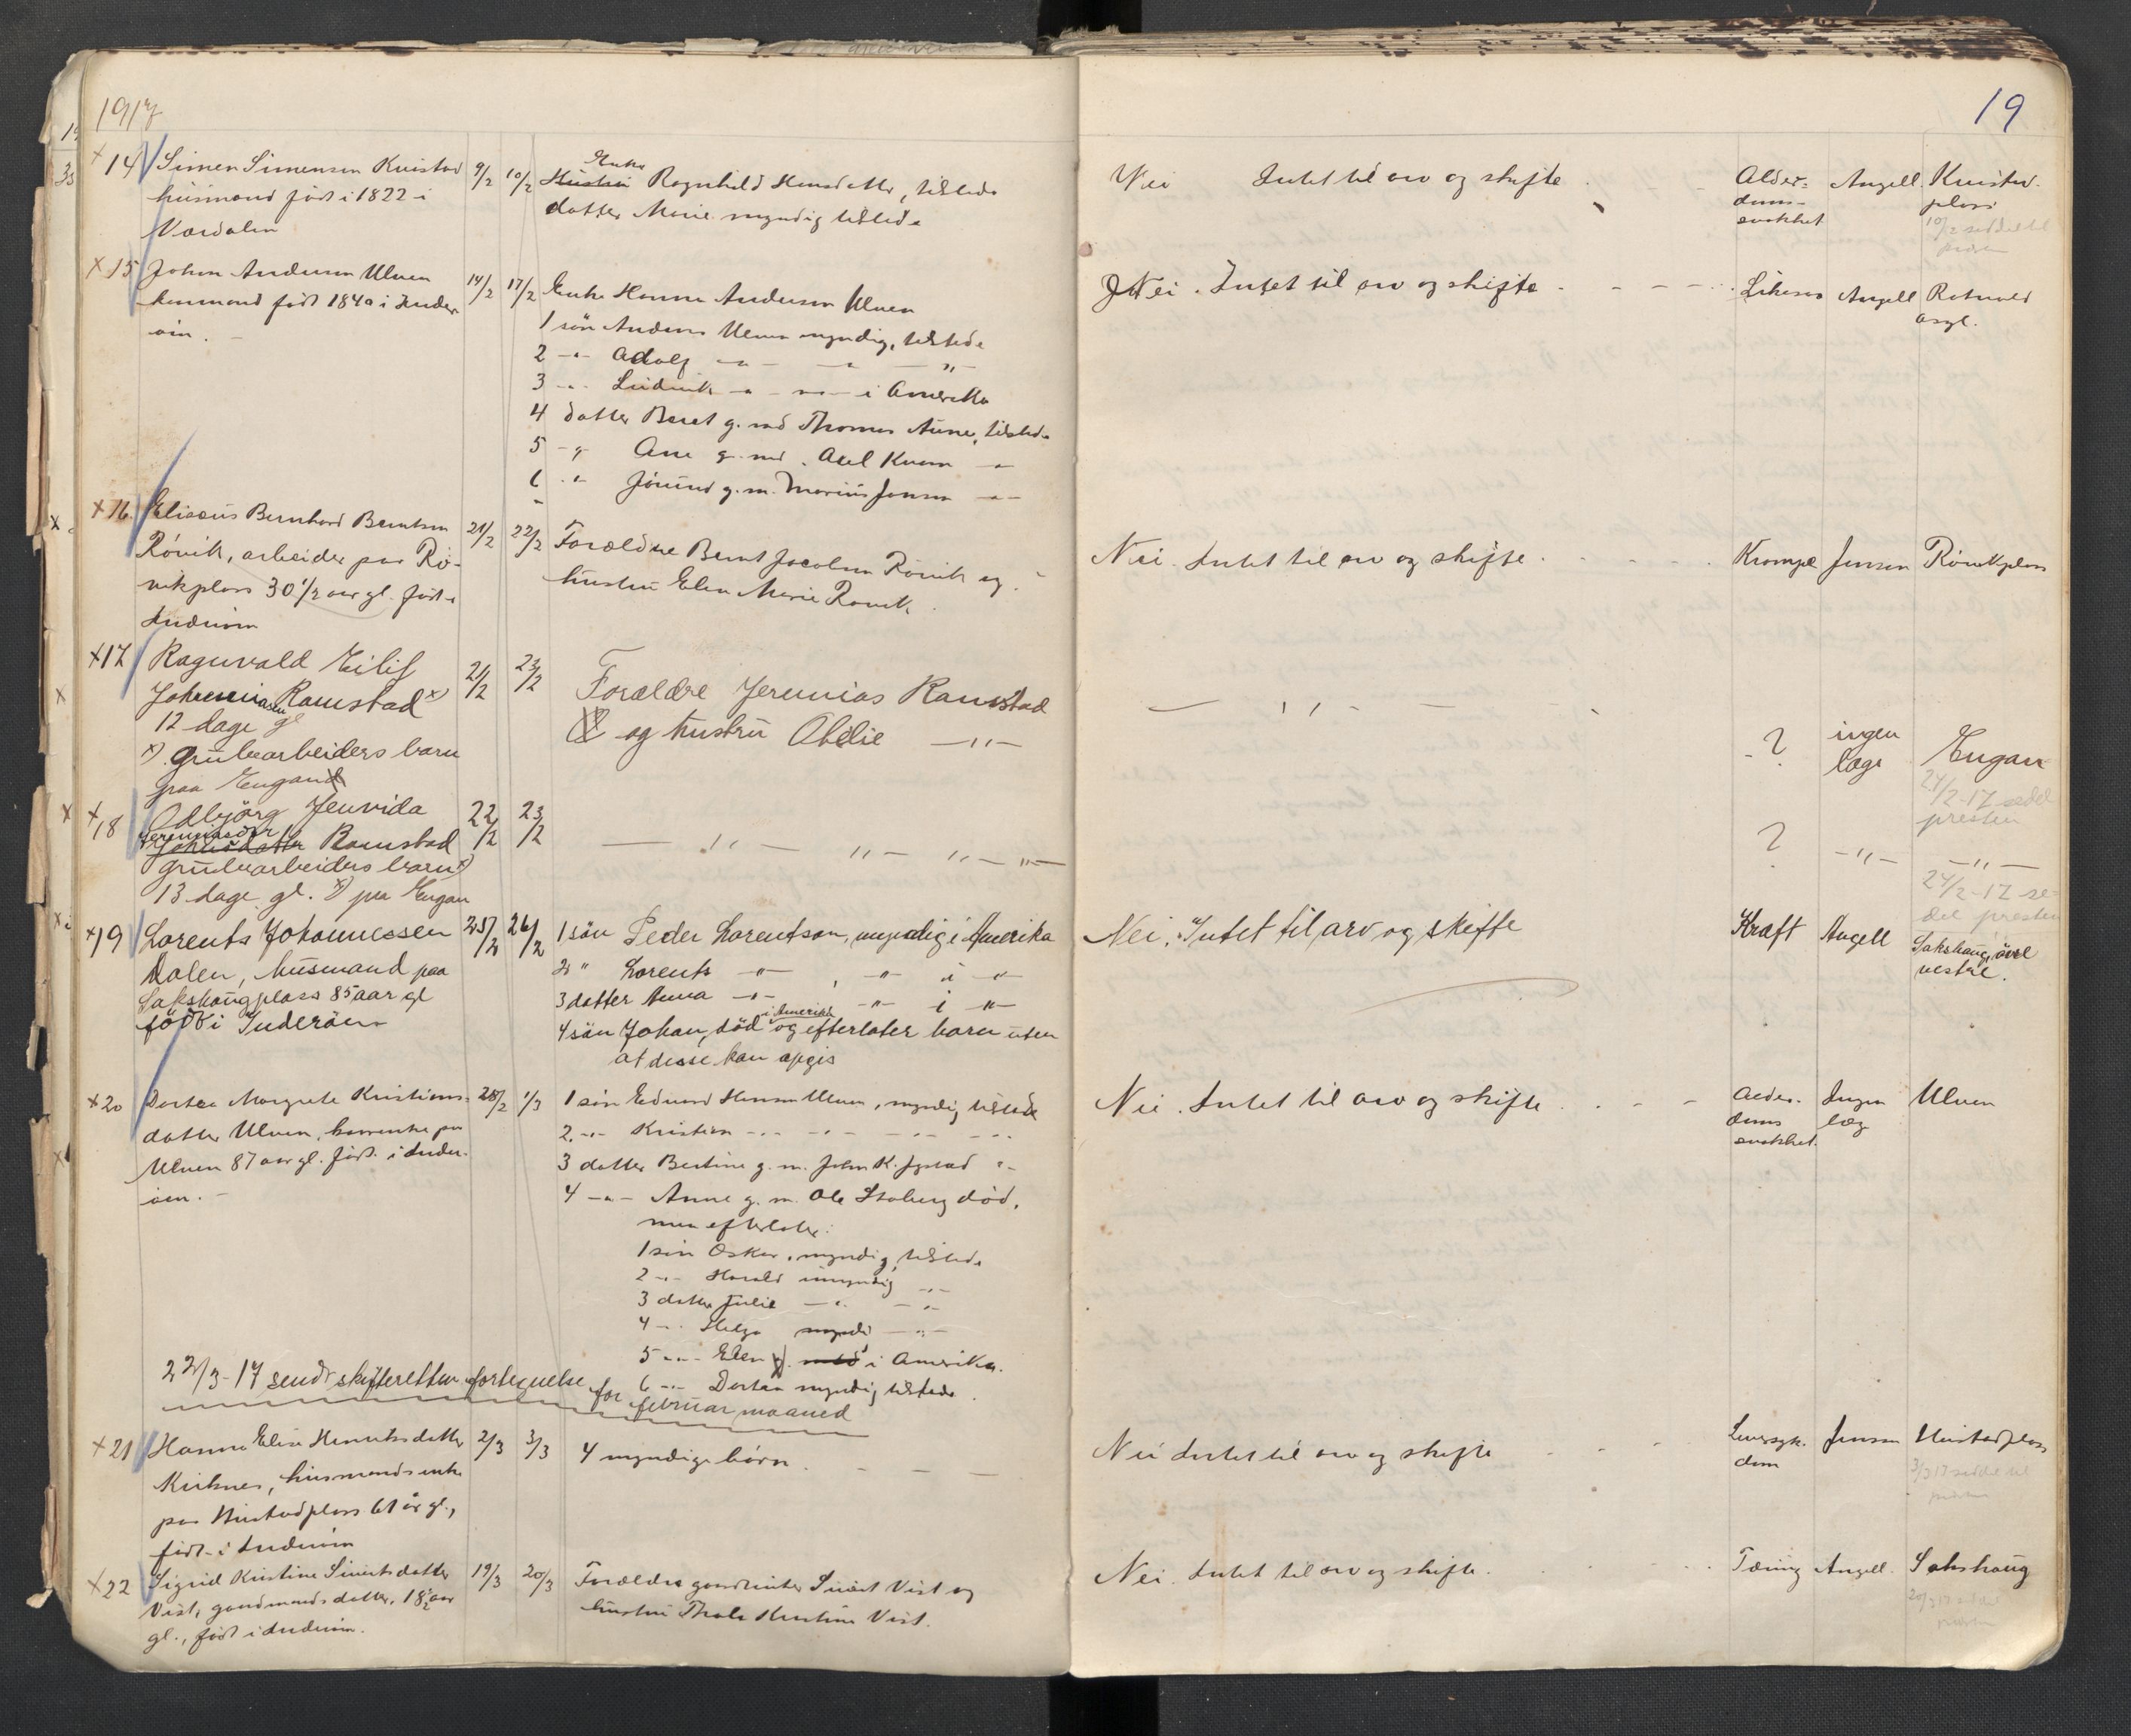 1917
19
×14 Simen Simensen Kvistad
husmand født i 1822 i
Værdalen
9/2 10/2
Enke
Hustru Ragnhild Hansdatter, tilstede
datter Marie myndig tilstede
Nei Intet til arv og skifte
Alder-
doms-
svakhet
Angell
Kvistad-
plass
10/2 seddel til
presten
×15 Johan Andersen Ulven
husmand født 1840 i Inder-
øen.
14/2 17/2
Enke Hanna Andersen Ulven
1 søn Anders Ulven myndig, tilstede
2 -"- Adolf -"- -"- -"-
3 -"- Ludvik -"- -"- i Amerika
4 datter Beret g. med Thomas Aune, tilstede
5 -"- Ane g. med Axel Kvam -"-
6 -"- Jørund g.m. Marius Jensen -"-
Nei. Intet til arv og skifte
Angell
Rotvold
asyl.
×16. Elisæus Bernhard Berntsen
Rövik, arbeider paa Rö-
vikplass 30 1/2 aar gl. født i
Inderøen
21/2 22/2
Forældre Bernt Jacobsen Rövik og
hustru Elen Marie Rövik.
Nei. Intet til arv og skifte.
Krampe Jensen Rövikplass
×17 Ragnvald Eilif
Jeremiasen Ramstad ×)
12 dage gl
×) Grubearbeiders barn
paa Engan
21/2 23/2
Forældre Jeremias Ramstad
og hustru Obelie -"-
-"-
?
ingen
læge
Engan
24/2-17 sedel
presten
×18 Odbjörg Jenvida
Jeremiasdtr
Ramstad
grubearbeiders barn ×)
13 dage gl. ×) paa Engan
22/2 23/2
-"- -"- -"- -"-
? -"- -"-
24/2-17 se-
del presten
×19 Lorents Johannessen
Dalen, husmand paa
Sakshaugplass 85 aar gl
født i Inderöen
25/2 26/2
1 sön Peder Lorentsen, myndig i Amerika
2 " Lorents -"- , -"- i -"-
3 datter Anna -"- -"- i -"-
i Amerika
4 sön Johan, död og efterlater barn uten
at disse kan opgis
Nei. Intet til arv og skifte
Kræft Angell Sakshaug övre
vestre.
×20 Dortea Margrete Kristians-
datter Ulven, kaarenke paa
Ulven 87 aar gl. født i Inder-
øen.
28/2 1/3
1 søn Edvard Hansen Ulven, myndig tilstede
2. -"- Kristian -"- -"- -"- -"-
3 datter Bertine g. m. John K. Jystad -"-
4 -"- Anne g. m. Ole Stoberg død,
men efterlater:
1 søn Oskar, myndig, tilstede
2 -"- Harald umyndig -"-
3 datter Julie -"- -"-
4 -"- Helga myndi -"-
5 -"- Elen g. med i Amerika.
6 -"- Dortea myndig tilstede.
Nei. Intet til arv og skifte
Alder-
doms
svakhet.
Ingen
læge
Ulven
22/3-17 sendt skifteretten fortegnelse
for februar maaned
×21 Hanna Elise Henriksdatter
Kirknes, husmandsenke
paa Hustadplass 61 år gl.,
født i Inderøen
2/3 3/3
4 myndige börn.
Nei Intet til arv og skifte
Leversyk-
dom
Jensen Hustadplass
3/3 17 seddel til
presten
×22 Sigrid Kristine Sivertsdatter
Vist, gaardmandsdatter, 18 1/2 aar
gl., født i Inderøen.
19/3 20/3
Forældre gaardbruker Sivert Vist og
hustru Thale Kristine Vist.
Nei. Intet til arv og skifte.
Tæring Angell. Sakshaug
20/3 17 seddel
presten